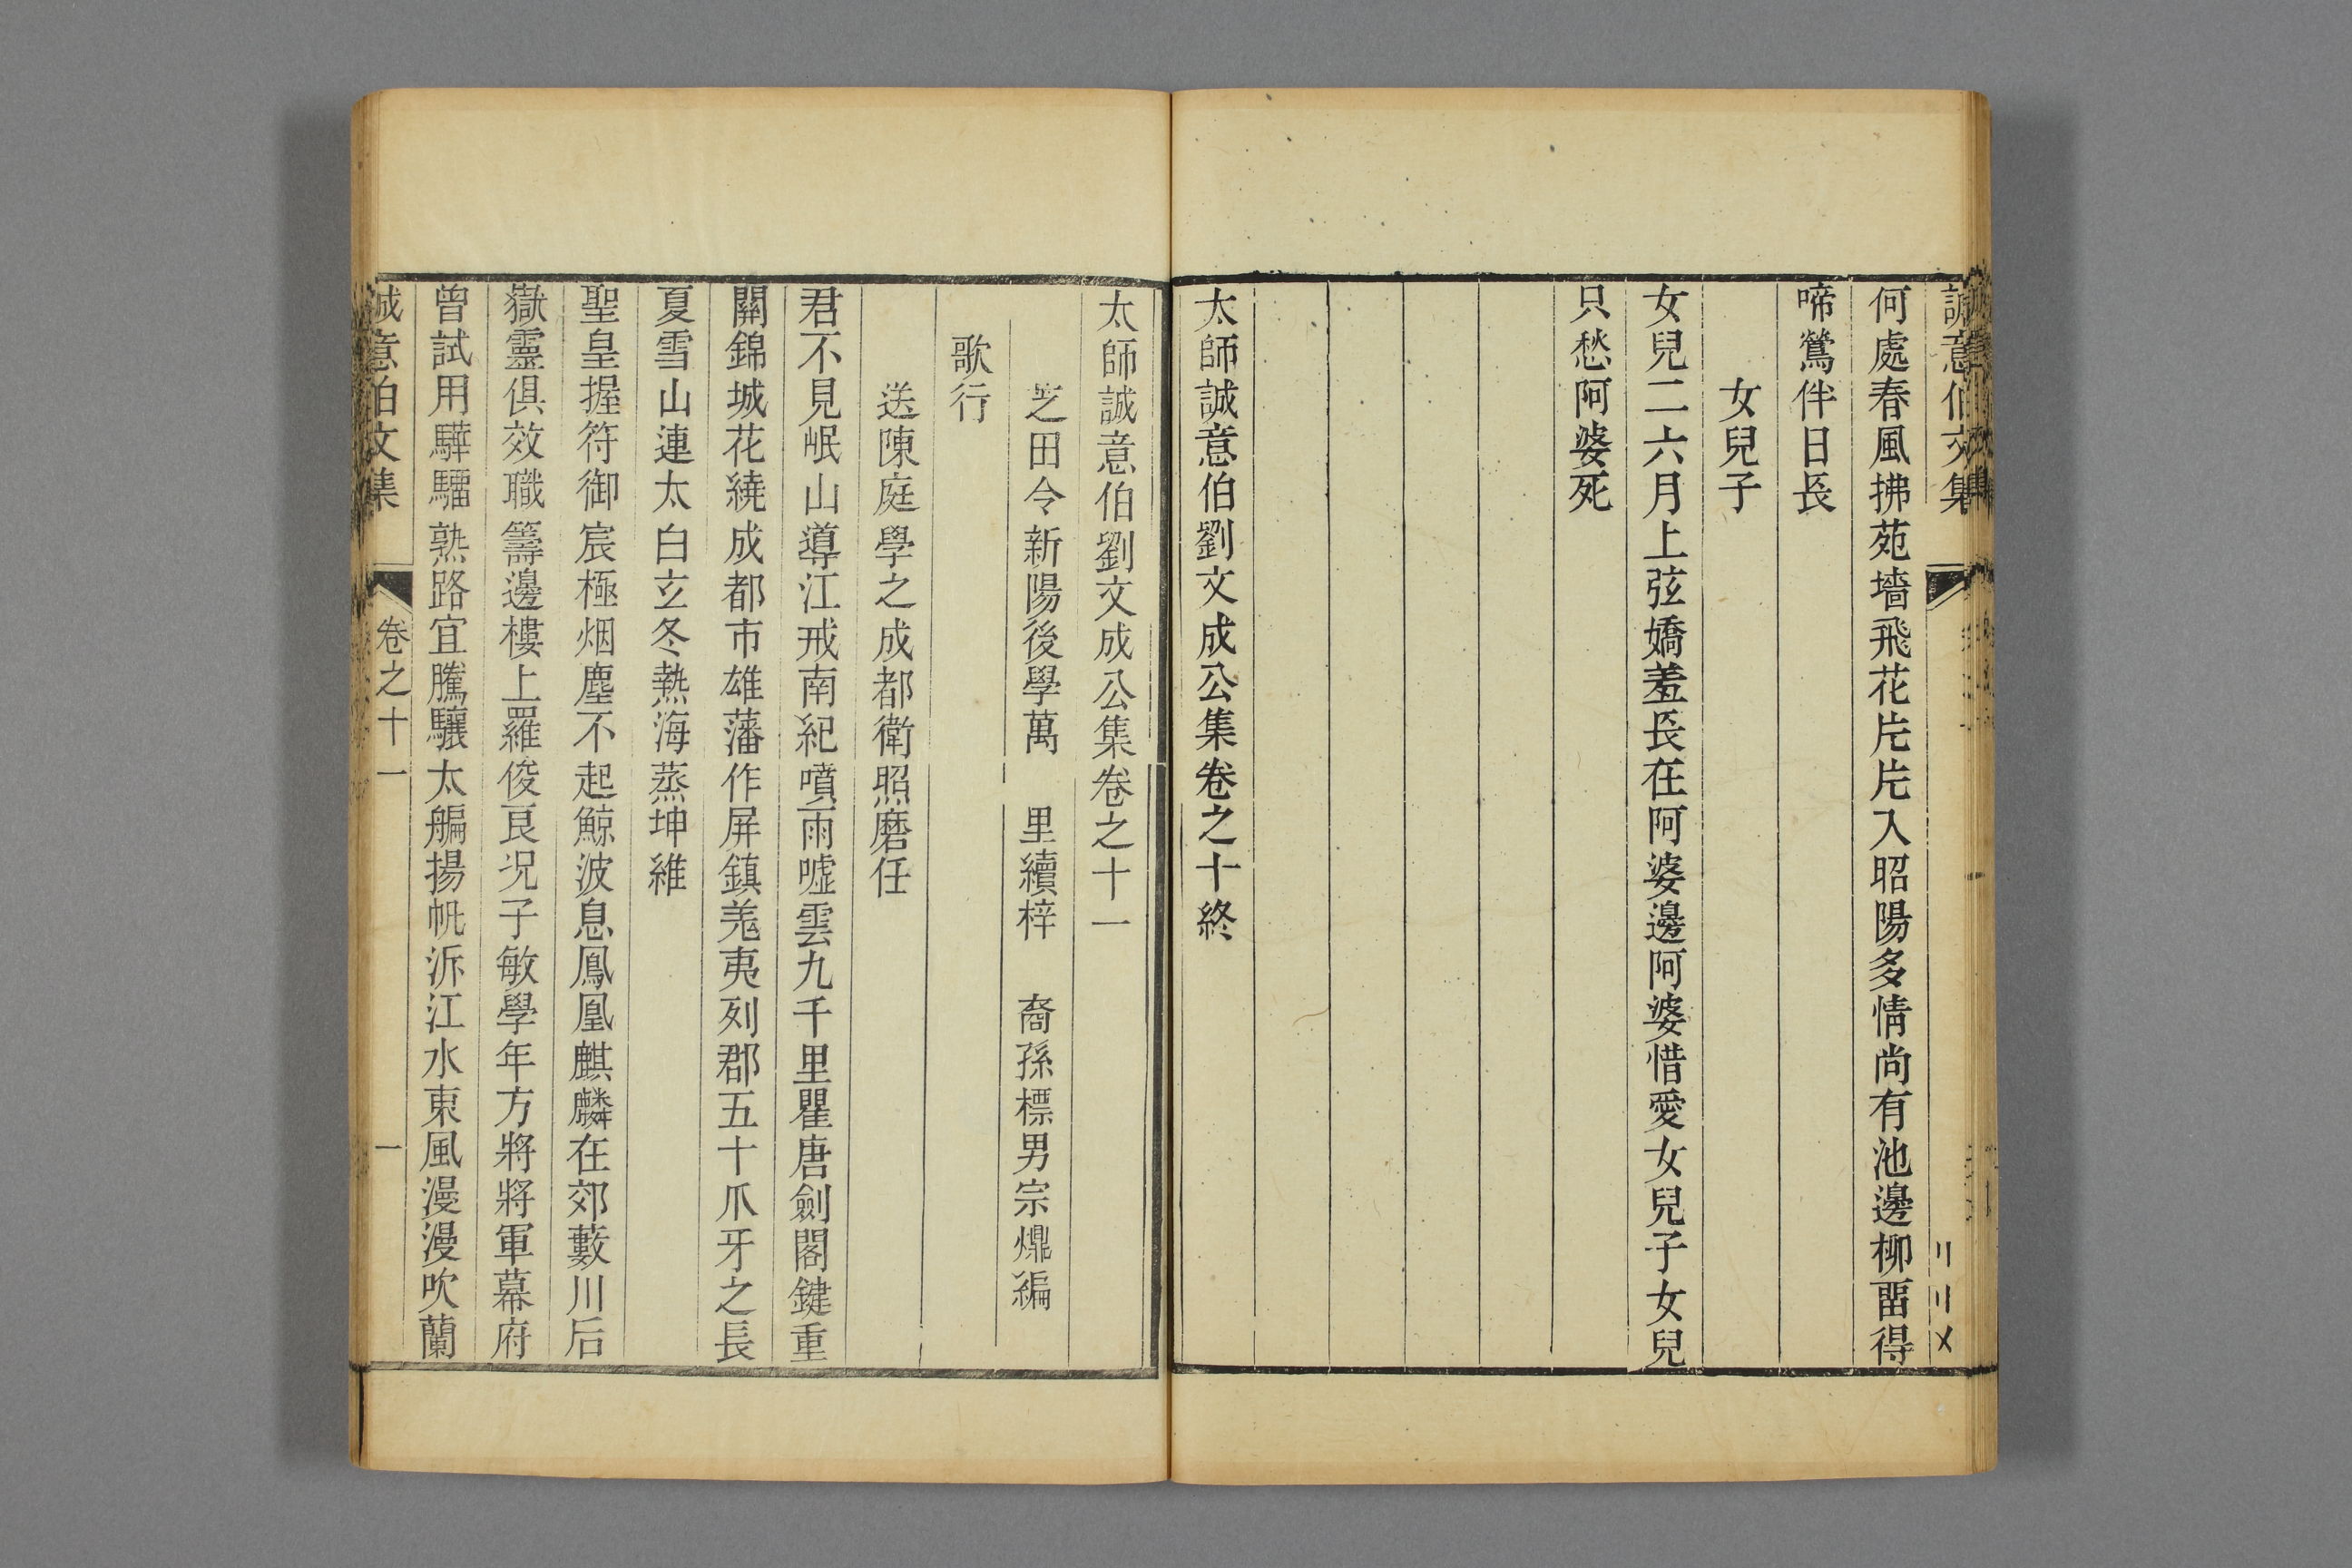 誠意伯文集
何處春風拂苑墻飛花片片入昭陽多情尚有池邊柳畱得
啼鶯伴日長
女兒子
女兒二六月上弦嬌羞長在阿婆邊阿婆惜愛女兒子女兒
只愁阿婆死
太師誠意伯劉文成公集卷之十終
太師誠意伯劉文成公集卷之十一
芝田令新陽後學萬 里續梓 裔孫標男宗㸁編
歌行
送陳庭學之成都衛照磨任
君不見岷山導江戒南紀噴雨噓雲九千里瞿唐劍閣鍵重
關錦城花繞成都市雄藩作屏鎮羗夷列郡五十爪牙之長
夏雪山連太白玄冬熱海蒸坤維
聖皇握符御宸極烟塵不起鯨波息鳳凰麒麟在郊藪川后
嶽靈俱效職籌邊樓上羅俊良况子敏學年方將將軍幕府
曾試用驊騮熟路宜騰驤太艑揚帆泝江水東風漫漫吹蘭
誠意伯文集 卷之十一 一